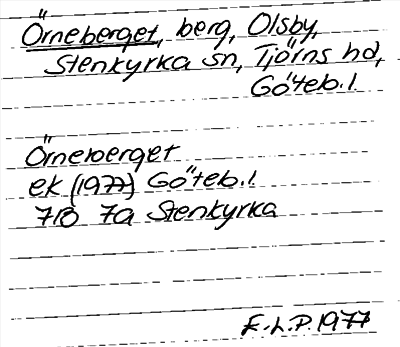 Örneberget, berg, Olsby,
Stenkyrka sn, Tjörns hd,
Göteb. l.
Örneberget
ek (1977) Göteb. l.
7B 7a Stenkyrka
E.L.P. 1977